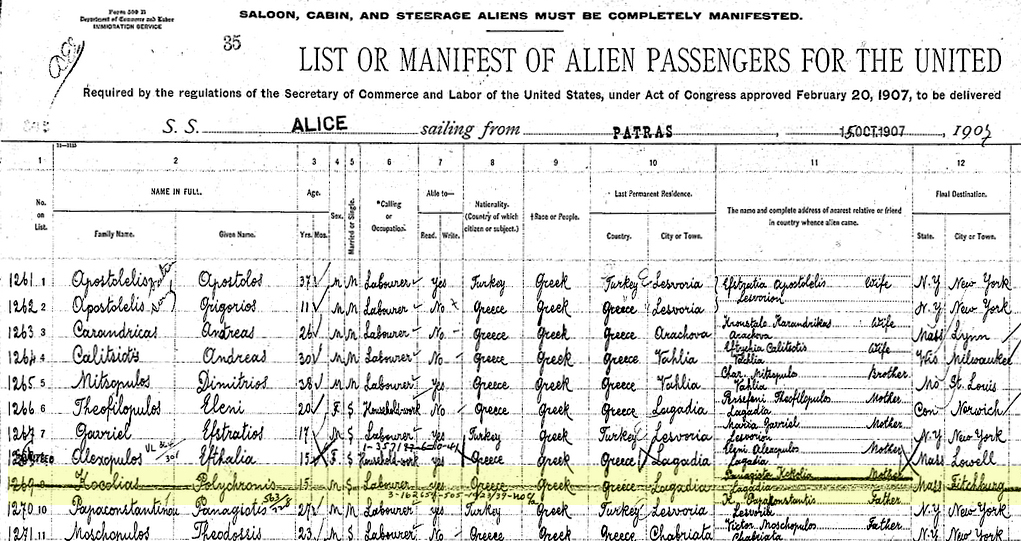 Form 500 B
Department of Commerce and Labor
IMMIGRATION SERVICE
SALOON, CABIN, AND STEERAGE ALIENS MUST BE COMPLETELY MANIFESTED.
35
LIST OR MANIFEST OF ALIEN PASSENGERS FOR THE UNITED
Required by the regulations of the Secretary of Commerce and Labor of the United States, under Act of Congress approved February 20, 1907, to be delivered
S. S. ALICE sailing from PATRAS, 15 OCT. 1907, 1907
1 2 3 4 5 6 7 8 9 10 11 12
No. on List. NAME IN FULL. Age. Sex. Married or Single. *Calling or Occupation. Able to— Nationality. (Country of which citizen or subject.) †Race or People. Last Permanent Residence. The name and complete address of nearest relative or friend in country whence alien came. Final Destination.
Family Name. Given Name. Yrs. Mos. Read. Write. Country. City or Town. State. City or Town.
1261 1 Apostolelis Apostolos 37 M M Labourer Yes Turkey Greek Turkey Lesvoria Efstratia Apostolelis Wife Lesvorion N.Y. New York
1262 2 Apostolelis Grigorios 11 M M Labourer No Greece Greek Greece Lesvoria N.Y. New York
1263 3 Carandricas Andreas 26 M M Labourer No Greece Greek Greece Arachova Karandrikas Wife Arachova Mass Lynn
1264 4 Calitsiotis Andreas 30 M M Labourer No Greece Greek Greece Vahlia Wife Vahlia Wis Milwaukee
1265 5 Mitsopulos Dimitrios 38 M M Labourer Yes Greece Greek Greece Vahlia Char. Mitsopulo Brother Vahlia Mo St. Louis
1266 6 Theofilopulos Eleni 20 F S Household-work No Greece Greek Greece Lagadia Persefoni Theofilopulos Mother Lagadia Con Norwich
1267 7 Gavriel Efstratios 17 M S Labourer Yes Turkey Greek Turkey Lesvoria Maria Gavriel Mother Lesvorion N.Y. New York
8 Alexopulos Efthalia 15 F S Household-work yes Greece Greek Greece Lagadia Eleni Alexopulos Mother Lagadia Mass Lowell
1269 9 Kocolias Polychronis 15 M S Labourer Yes Greece Greek Greece Lagadia Panagiota Kokolia Mother Lagadia Mass Fitchburg
1270 10 Papaconstantinou Panagiotis M S Labourer Yes Turkey Greek Turkey Lesvoria K. Papakonstantis Father Lesvorion N.Y. New York
1271 11 Moschopulos Theodossis 23 M S Labourer Yes Greece Greek Greece Chabriata Victor Moschopulos Father Chabriata N.Y. New York